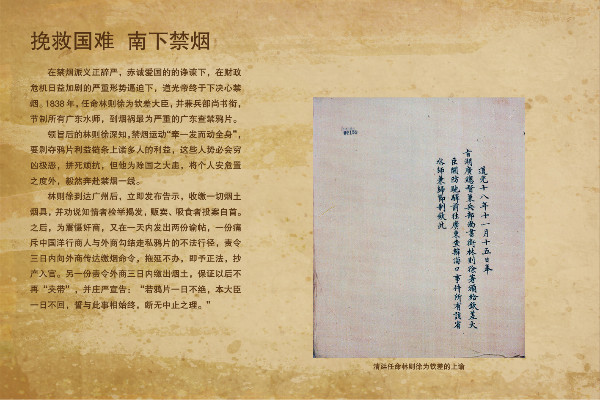 挽救国难  南下禁烟
在禁烟派义正辞严，赤诚爱国的的诤谏下，在财政
危机日益加剧的严重形势逼迫下，道光帝终于下决心禁
烟。1838年，任命林则徐为钦差大臣，并兼兵部尚书衔，
节制所有广东水师，到烟祸最为严重的广东查禁鸦片。
领旨后的林则徐深知，禁烟运动“牵一发而动全身”，
要剥夺鸦片利益链条上诸多人的利益，这些人势必会穷
凶极恶，拼死顽抗，但他为除国之大患，将个人安危置
之度外，毅然奔赴禁烟一线。
林则徐到达广州后，立即发布告示，收缴一切烟土
烟具，并劝说知情者检举揭发，贩卖、吸食者投案自首。
之后，为震慑奸商，又在一天内发出两份谕帖，一份痛
斥中国洋行商人与外商勾结走私鸦片的不法行径，责令
三日内向外商传达缴烟命令，拖延不办，即予正法，抄
产入官。另一份责令外商三日内缴出烟土，保证以后不
再“夹带”，并庄严宣告：“若鸦片一日不绝，本大臣
一日不回，誓与此事相始终，断无中止之理。”
道光十八年十一月十五日奉
旨湖廣總督兼兵部尚書銜林則徐著頒給欽差大
臣關防馳驛前往廣東查辦海口事件所有該省
水師兼歸節制欽此
清廷任命林则徐为钦差的上谕